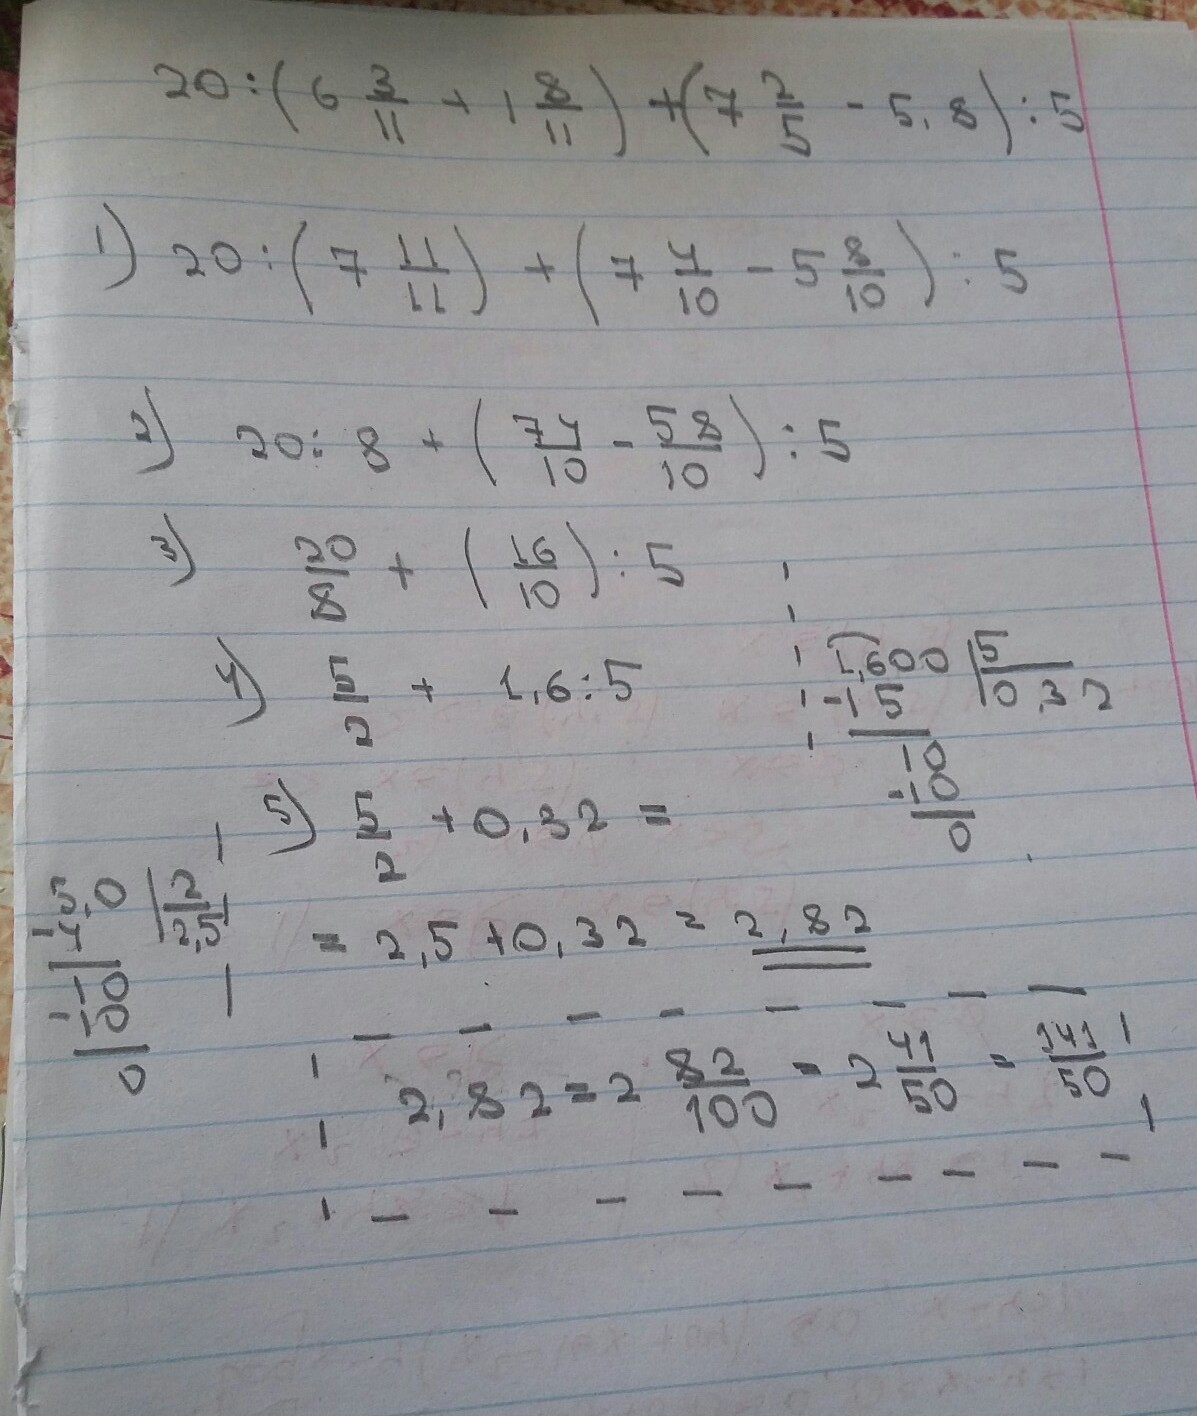 20:(6 3/11 + 1 8/11) + (7 2/5 - 5,8):5
1) 20:(7 11/11) + (7 4/10 - 5 8/10):5
2) 20:8 + (74/10 - 58/10):5
3) 20/8 + (16/10):5
4) 5/2 + 1,6:5
1,600 | 5
-15 | 0,32
10
-10
0
5) 5/2 + 0,32 =
5,0 | 2
-4 | 2,5
10
-10
0
= 2,5 + 0,32 = 2,82
2,82 = 2 82/100 = 2 41/50 = 141/50